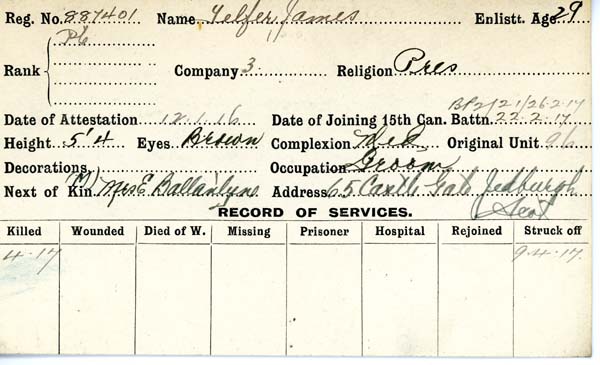 Reg. No. 887401 Name Telfer, James Enlistt. Age 29
Rank Pte Company 3 Religion Pres
BP2/21/26-2-17
Date of Attestation 12.1.16 Date of Joining 15th Can. Battn. 22.2.17
Height 5'4 Eyes Brown Complexion Med Original Unit 96
Decorations Occupation Groom
Next of Kin (M) Mrs E Ballantyne Address 65 Castle Gate Jedburgh
Scot
RECORD OF SERVICES.
Killed Wounded Died of W. Missing Prisoner Hospital Rejoined Struck off
4-17 9-4-17